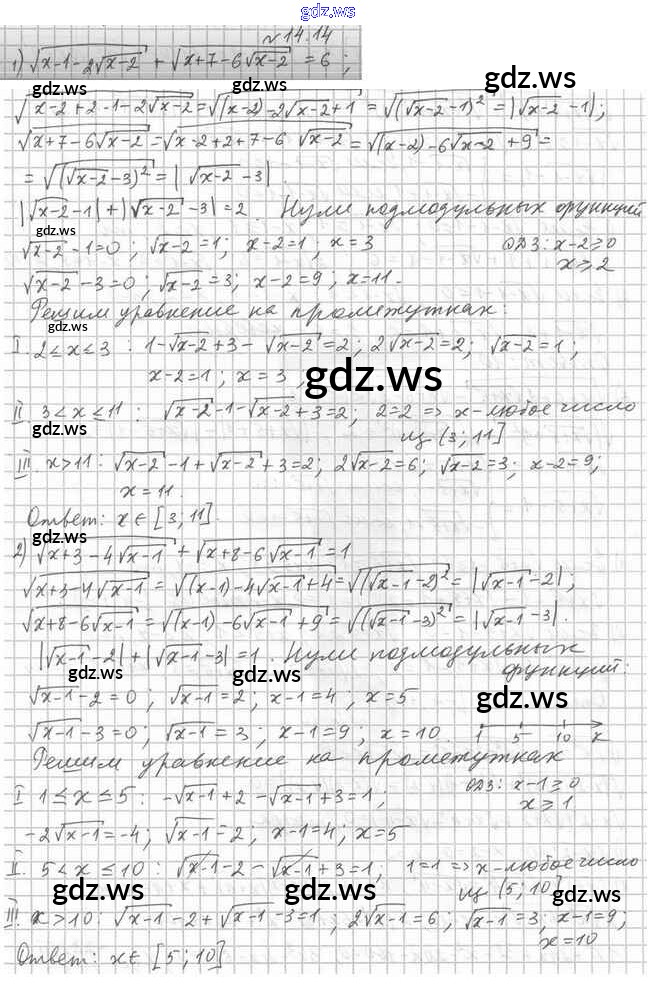 gdz.ws
№14.14
1) √(x-1-2√(x-2)) + √(x+7-6√(x-2)) = 6;
gdz.ws
√(x-2+2-1-2√(x-2)) = √((x-2)-2√(x-2)+1) = √((√(x-2)-1)²) = |√(x-2)-1|;
√(x+7-6√(x-2)) = √(x-2+2+7-6√(x-2)) = √((x-2)-6√(x-2)+9) =
= √((√(x-2)-3)²) = |√(x-2)-3|.
|√(x-2)-1|+|√(x-2)-3|=2. Нули подмодульных функций
gdz.ws
√(x-2)-1=0; √(x-2)=1; x-2=1; x=3 ОДЗ: x-2≥0
√(x-2)-3=0; √(x-2)=3; x-2=9; x=11. x≥2
Решим уравнение на промежутках:
gdz.ws
I. 2≤x≤3: 1-√(x-2)+3-√(x-2)=2; 2√(x-2)=2; √(x-2)=1;
x-2=1; x=3,
gdz.ws
II. 3<x≤11: √(x-2)-1-√(x-2)+3=2; 2=2 => x-любое число
gdz.ws
из (3; 11]
III x>11: √(x-2)-1+√(x-2)+3=2; 2√(x-2)=6; √(x-2)=3; x-2=9;
x=11.
Ответ: x∈[3; 11].
gdz.ws gdz.ws
2) √(x+3-4√(x-1)) + √(x+8-6√(x-1)) = 1
√(x+3-4√(x-1)) = √((x-1)-4√(x-1)+4) = √((√(x-1)-2)²) = |√(x-1)-2|;
√(x+8-6√(x-1)) = √((x-1)-6√(x-1)+9) = √((√(x-1)-3)²) = |√(x-1)-3|.
|√(x-1)-2|+|√(x-1)-3|=1. Нули подмодульных
gdz.ws gdz.ws функций:
√(x-1)-2=0; √(x-1)=2; x-1=4; x=5 gdz.ws
√(x-1)-3=0; √(x-1)=3; x-1=9; x=10. 1 5 10 x
Решим уравнение на промежутках
gdz.ws
I 1≤x≤5: -√(x-1)+2-√(x-1)+3=1; ОДЗ: x-1≥0
x≥1
-2√(x-1)=-4; √(x-1)=2; x-1=4; x=5
II. 5<x≤10: √(x-1)-2-√(x-1)+3=1; 1=1 => x-любое число
gdz.ws gdz.ws из (5; 10]
III. x>10: √(x-1)-2+√(x-1)-3=1; 2√(x-1)=6; √(x-1)=3; x-1=9;
x=10
Ответ: x∈[5; 10]
gdz.ws gdz.ws